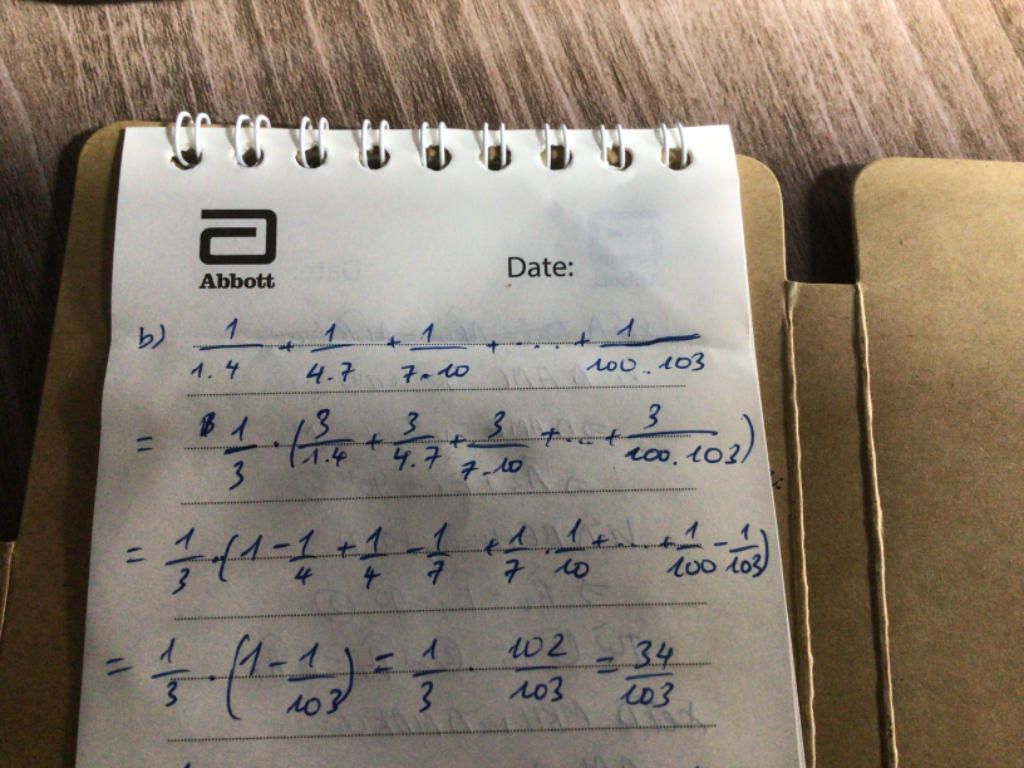 Abbott
Date:
b) 1/1.4 + 1/4.7 + 1/7.10 + ... + 1/100.103
= 1/3 . (3/1.4 + 3/4.7 + 3/7.10 + ... + 3/100.103)
= 1/3 . (1 - 1/4 + 1/4 - 1/7 + 1/7 . 1/10 + ... + 1/100 - 1/103)
= 1/3 . (1 - 1/103) = 1/3 . 102/103 = 34/103